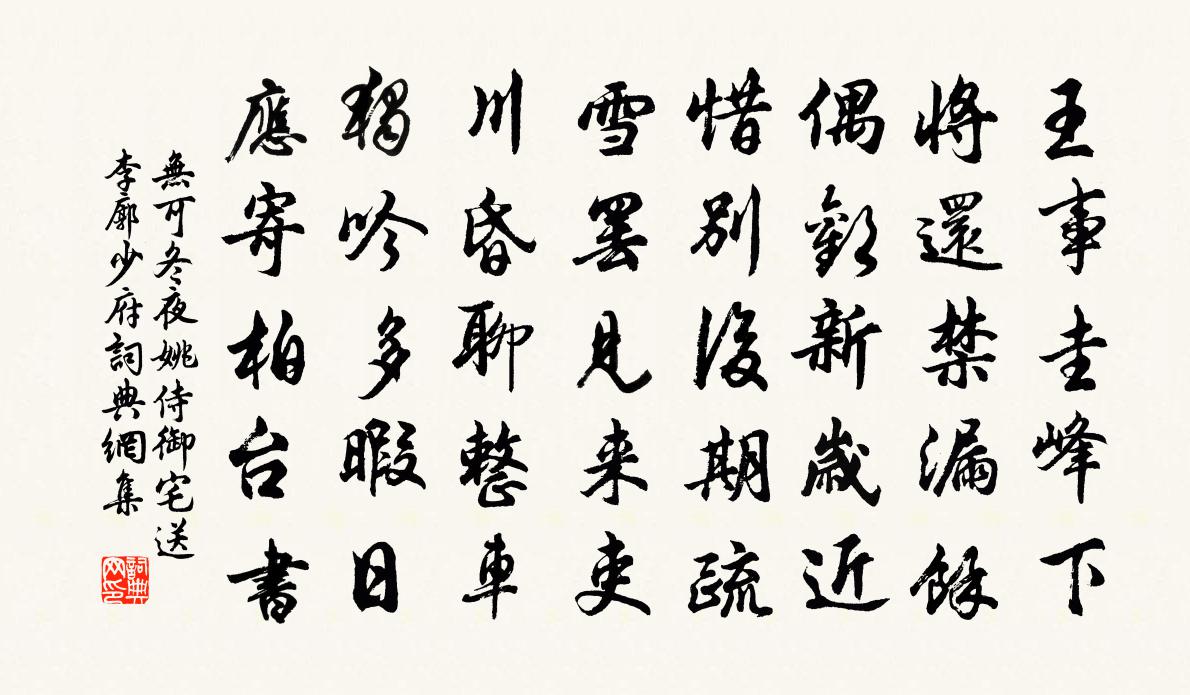 王事圭峰下
將還禁漏餘
偶歡新歲近
惜別後期疏
雪罷見来吏
川昏聊整車
獨吟多暇日
應寄柏台書
無可冬夜姚侍御宅送
李廓少府詞典網集
詞典
网印